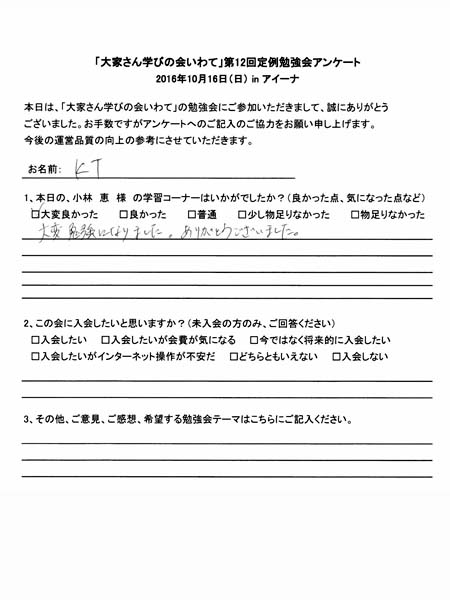 「大家さん学びの会いわて」第12回定例勉強会アンケート
2016年10月16日(日) in アイーナ
本日は、「大家さん学びの会いわて」の勉強会にご参加いただきまして、誠にありがとう
ございました。お手数ですがアンケートへのご記入のご協力をお願い申し上げます。
今後の運営品質の向上の参考にさせていただきます。
お名前: KT
1、本日の、小林 恵 様 の学習コーナーはいかがでしたか?(良かった点、気になった点など)
□大変良かった □良かった □普通 □少し物足りなかった □物足りなかった
大変勉強になりました。ありがとうございました。
2、この会に入会したいと思いますか?(未入会の方のみ、ご回答ください)
□入会したい □入会したいが会費が気になる □今ではなく将来的に入会したい
□入会したいがインターネット操作が不安だ □どちらともいえない □入会しない
3、その他、ご意見、ご感想、希望する勉強会テーマはこちらにご記入ください。